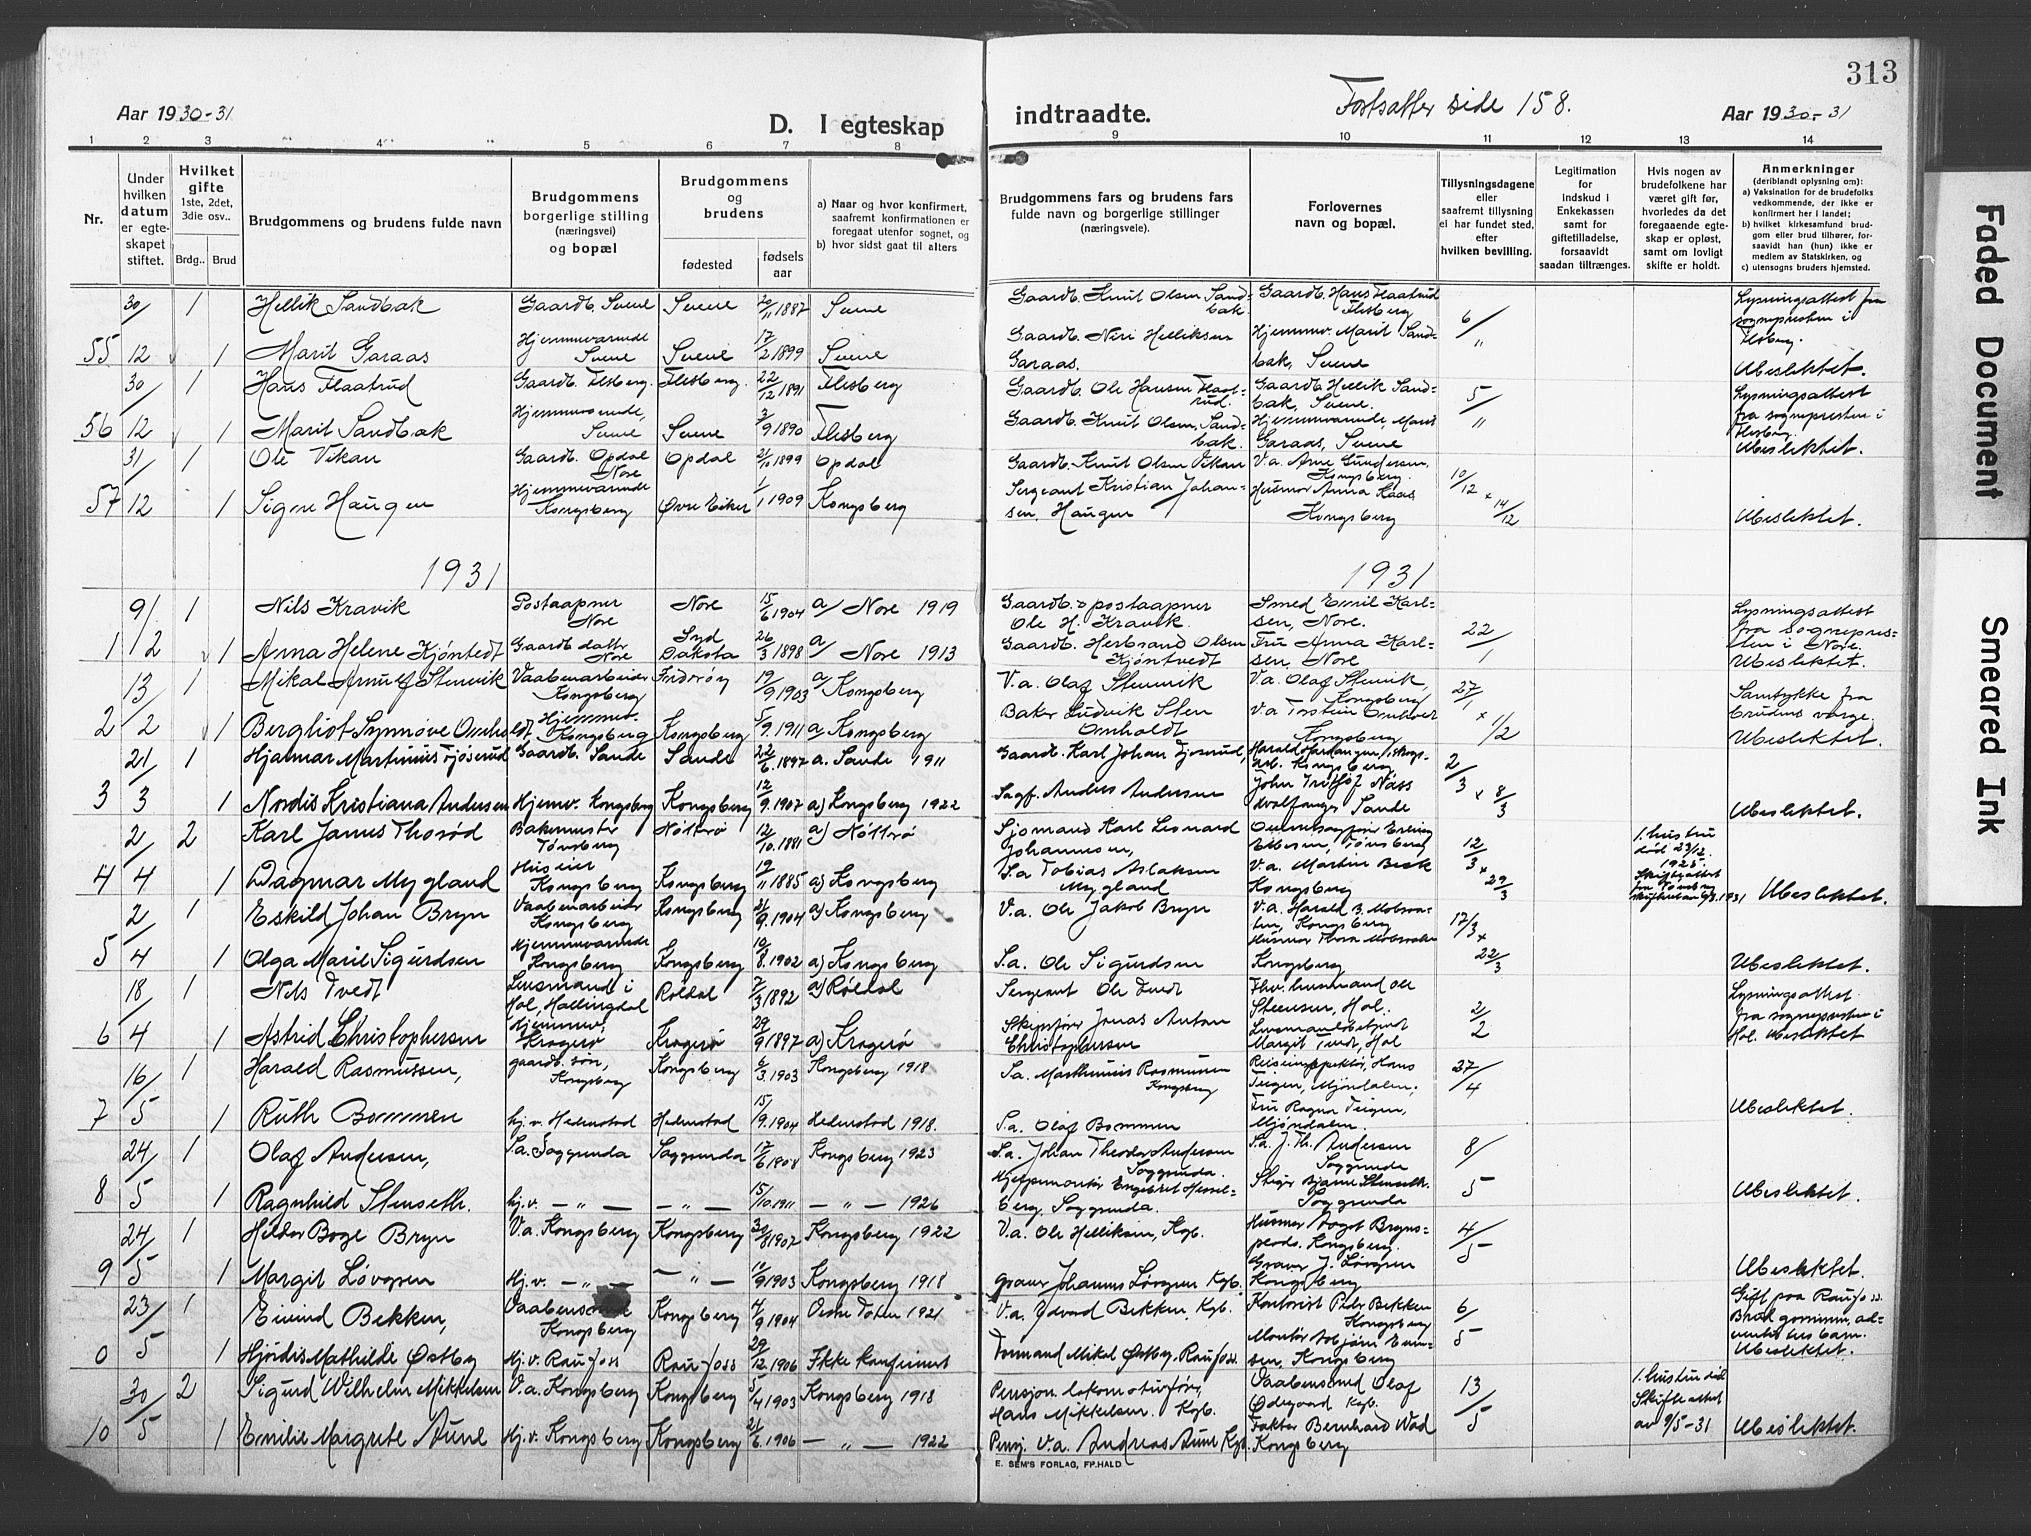 313
Fortsatter side 158.
Aar 1930-31
D. I egteskap indtraadte.
Aar 1930-31
1 2 3 4 5 6 7 8 9 10 11 12 13 14
Nr.
Under hvilken datum er egteskapet stiftet.
Hvilket gifte 1ste, 2det, 3die osv..
Brdg.. Brud
Brudgommens og brudens fulde navn
Brudgommens borgerlige stilling (næringsvei) og bopæl
Brudgommens og brudens
fødested
fødselsaar
a) Naar og hvor konfirmert, saafremt konfirmationen er foregaat utenfor sognet, og
b) hvor sidst gaat til alters
Brudgommens fars og brudens fars fulde navn og borgerlige stillinger (næringsveie).
Forlovernes navn og bopæl.
Tillysningsdagene eller saafremt tillysning ei har fundet sted, efter hvilken bevilling.
Legitimation for indskud i Enkekassen samt for giftetilladelse, forsaavidt saadan tiltrænges.
Hvis nogen av brudefolkene har været gift før, hvorledes da det foregaaende egteskap er opløst, samt om lovligt skifte er holdt.
Anmerkninger
(deriblandt oplysning om):
a) Vaksination for de brudefolks vedkommende, der ikke er konfirmert her i landet;
b) hvilket kirkesamfund brudgom eller brud tilhører, forsaavidt han (hun) ikke er medlem av Statskirken, og
c) utensogns bruders hjemsted.
30/ 1 Hellik Sandbak Gaardb. Svene Svene 20/11 1887 Svene Gaardb. Knut Olsen Sandbak. Gaardb. Hans Flaatrud Flesberg 6/ Lysningsattest fra sognepresten i Flesberg.
55 12 1 Marit Garaas Hjemmeværende Svene Svene 17/2 1899 Svene Gaardb. Neri Helliksen Garaas. Hjemmev. Marit Sandbak, Svene " Ubeslektet.
30/ 1 Hans Flaatrud Gaardb. Flesberg. Flesberg. 22/12 1891 Flesberg Gaardb. Ole Hansen Flaatrud. Gaardb. Hellik Sandbak, Svene. 5/ Lysningsattest fra sognepresten i Flesberg.
56 12 1 Marit Sandbak Hjemmeværende, Svene Svene 3/9 1890 Flesberg Gaardb. Knut Olsen Sandbak. Hjemmeværende Marit Garaas, Svene " Ubeslektet.
31/ 1 Ole Vikan Gaardb. Opdal Nore Opdal 21/10 1899 Opdal Gaardb. Knut Olsen Vikan V.a. Arne Gundersen, Kongsberg 10/12 x
57 12 1 Signe Haugen Hjemmeværende Kongsberg Øvre Eiker 1/1 1909 Kongsberg Sergeant Kristian Johansen, Haugen Husmor Anna Kaas Kongsberg 14/12 Ubeslektet.
1931 1931
9/ 1 Nils Kravik Postaapner Nore Nore 15/6 1904 a/ Nore 1919 Gaardb. & postaapner Ole H. Kravik. Smed Emil Karlsen, Nore. 22/ Lysningsattest fra sognepresten i Nore.
1 2 1 Anna Helene Kjøntvedt Gaardb. datter Nore Syd Dakota 26/3 1898 a/ Nore 1913 Gaardb. Herbrand Olsen Kjøntvedt Fru Anna Karlsen, Nore 1 Ubeslektet.
13/ 1 Mikal Arnulf Stenvik Vaabenarbeider Kongsberg Inderøy 19/9 1903 a/ Kongsberg V.a. Olaf Stenvik V.a. Olaf Stenvik, Kongsberg 27/1 x Samtykke fra brudens værge.
2 2 1 Bergliot Synnøve Omholdt Hjemmev. Kongsberg Kongsberg 5/9 1911 a/ Kongsberg Baker Ludvik Sten Omholdt V.a Torstein Omholdt Kongsberg 1/2 Ubeslektet.
21/ 1 Hjalmar Martinius Fjøserud Gaardb. Sande Sande 22/6 1897 a. Sande 1911 Gaardb. Karl Johan Fjøsrud, Harald Kongsberg 2/3 x
3 3 1 Nordis Kristiana Andersen Hjemv. Kongsberg Kongsberg 12/9 1907 a) Kongsberg 1922 Sagf. Anders Andersen John Fritjof Næss Sande 8/3 Ubeslektet.
2/ 2 Karl Janus Thorød Bakermester Tønsberg Nøtterø 12/10 1881 a) Nøtterø Sjømand Karl Leonard Johannesen, Erling Ellefsen, Tønsberg 12/3 x 1. hustru død 23/12 1925. Skifteattest fra Tønsberg skifteretten 6/3 1931
4 4 1 Dagmar Mygland Huseier Kongsberg Kongsberg 19/11 1885 a) Kongsberg S.a Tobias Aslaksen Mygland V.a. Martin Beck Kongsberg 29/3 Ubeslektet.
2/ 1 Eskild Johan Bryn Vaabenarbeider Kongsberg Kongsberg 21/9 1904 a) Kongsberg V.a. Ole Jakob Bryn V.a. Harald B. Kongsberg 17/3 x
5 4 1 Olga Marie Sigurdsen Hjemmeværende Kongsberg Kongsberg 10/8 1902 a) Kongsberg S.a. Ole Sigurdsen Husmor Thora Kongsberg 22/3 Ubeslektet.
18/ 1 Nils Tvedt Lensmand i Hol, Hallingdal Røldal 7/3 1892 a) Røldal Sergeant Ole Tvedt Fhv. lensmand Ole Steensen, Hol. 2/ Lysningsattest fra sognepresten i Hol.
6 4 1 Astrid Christophersen Hjemmev, Kragerø Kragerø 29/9 1897 a) Kragerø Skipsfører Jonas Anton Christophersen Lensmandsbetjent Margit Tvedt, Hol 2 Ubeslektet
16/ 1 Harald Rasmussen, gaardb. søn, Kongsberg Kongsberg 6/3 1903 Kongsberg 1918 S.a. Marthinius Rasmussen Kongsberg Reiseinspektør, Hans Teigen, Mjøndalen, 27/4
7 5 1 Ruth Bommen hj.v. Hedenstad Hedenstad 15/9 1904 Hedenstad 1918. S.a. Olaf Bommen Fru Ragna Teigen, Mjøndalen. Ubeslektet.
24/ 1 Olaf Andersen, S.a. Saggrenda Saggrenda 17/6 Kongsberg 1923 S.a. Johan Theodor Andersen Saggrenda. S.a. J. Th. Andersen Saggrenda 8/
8 5 1 Ragnhild Stenseth. hj.v. — " — — " — 15/10 1911 — " — 1926 Engebret Saggrenda. Stiger Bjarne Stenseth. Saggrenda 5 Ubeslektet.
24/ 1 Bryn V.a. Kongsberg Kongsberg 30/8 1907 Kongsberg 1922 V.a. Ole Helliksen, Kgb. Husmor Aagot Kongsberg. 4/5
9 5 1 Margit Løvgren Hj.v. — " — — " — 1903 Kongsberg 1918 Graver Johannes Løvgren Kgb. Graver J. Løvgren Kongsberg Ubeslektet.
23/ 1 Eivind Bekken, Kongsberg Kongsberg 4/9 1904 Østre Toten 1921 V.a. Edvard Bekken, Kgb. Kontorist Peder Bekken Kongsberg 6/ Gift paa Raufoss.
0 5 1 Hjørdis Mathilde Østby Hj.v. Raufoss Raufoss 29/12 1906 Ikke konfirmert Formand Mikal Østby, Raufoss. Montør Kongsberg 5 Brudgommen adventist Ubeslektet.
30/ 2 Sigurd Wilhelm Mikkelsen V.a. Kongsberg Kongsberg 5/4 1903 Kongsberg 1918 Pensjon. lokomotivfører, Hans Mikkelsen. Kgb. Vaabensmed Olaf Ødegaard Kgb. 13/ 1. hustru død Skifteattest av 9/5-31
10 5 1 Emilie Margrete Aune Hj.v. Kongsberg Kongsberg 21/6 1906 — " — 1922 Pensj. V.a. Andreas Aune Kgb. Faktor Bernhard Wad Kongsberg 5 Ubeslektet.
E. SEM'S FORLAG, FR.HALD
Faded Document
Smeared Ink